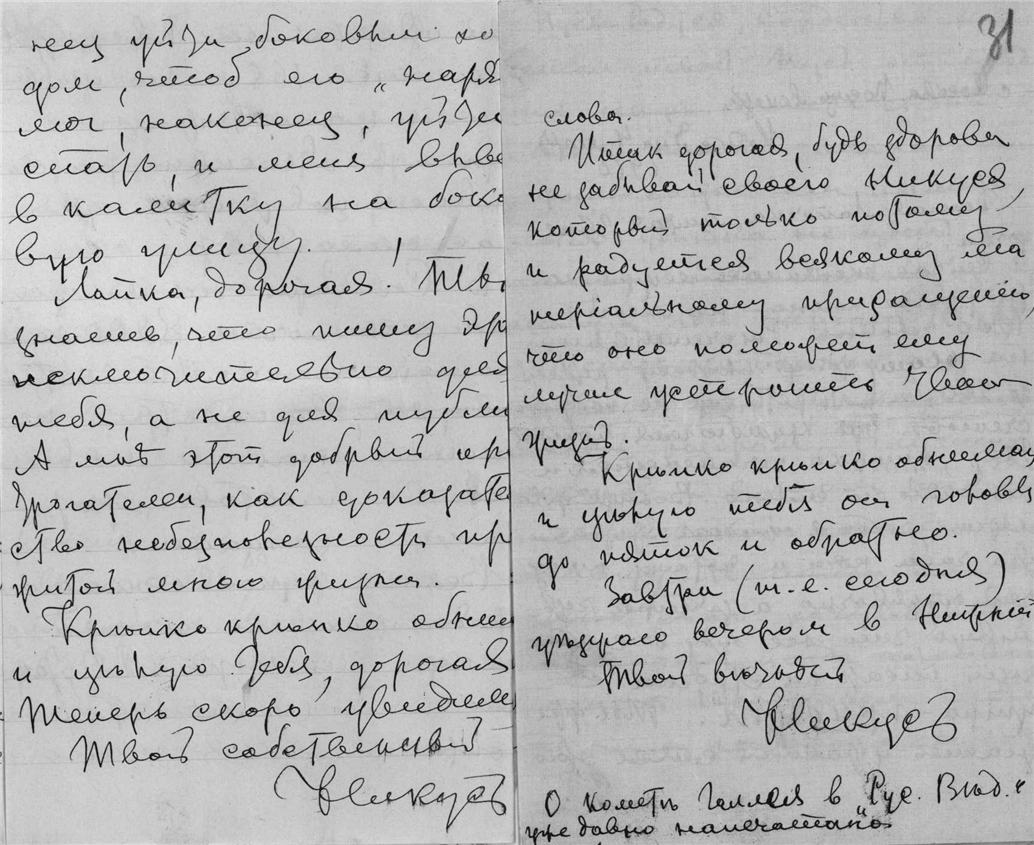 нец уйти боковым хо
дом, чтоб его „наря
мог, наконец, уйти
стать, и меня выве
в калитку на боко
вую улицу.
Лапка, дорогая. Ты
знаешь, что пишу это
исключительно для
тебя, а не для публи
А мнѣ этот добрый
трогателен, как доказате
ство небезполезности пр
житой мною жизни.
Крѣпко крѣпко обним
и цѣлую тебя, дорогая
Теперь скоро увидим
Твой собственный
Никусъ
31
слова.
Итак дорогая, будь здорова
не забывай своего Никуся,
который только потому
и радуется всякому ма
теріальному приращенію,
что оно поможет ему
лучше устроить твою
жизнь.
Крѣпко крѣпко обнимаю
и цѣлую тебя от головы
до пяток и обратно.
Завтра (т.е. сегодня)
уѣзжаю вечером в Нижній
Твой
Никусъ
О кометѣ Галлея в „Рус. Вѣд."
уже давно напечатано